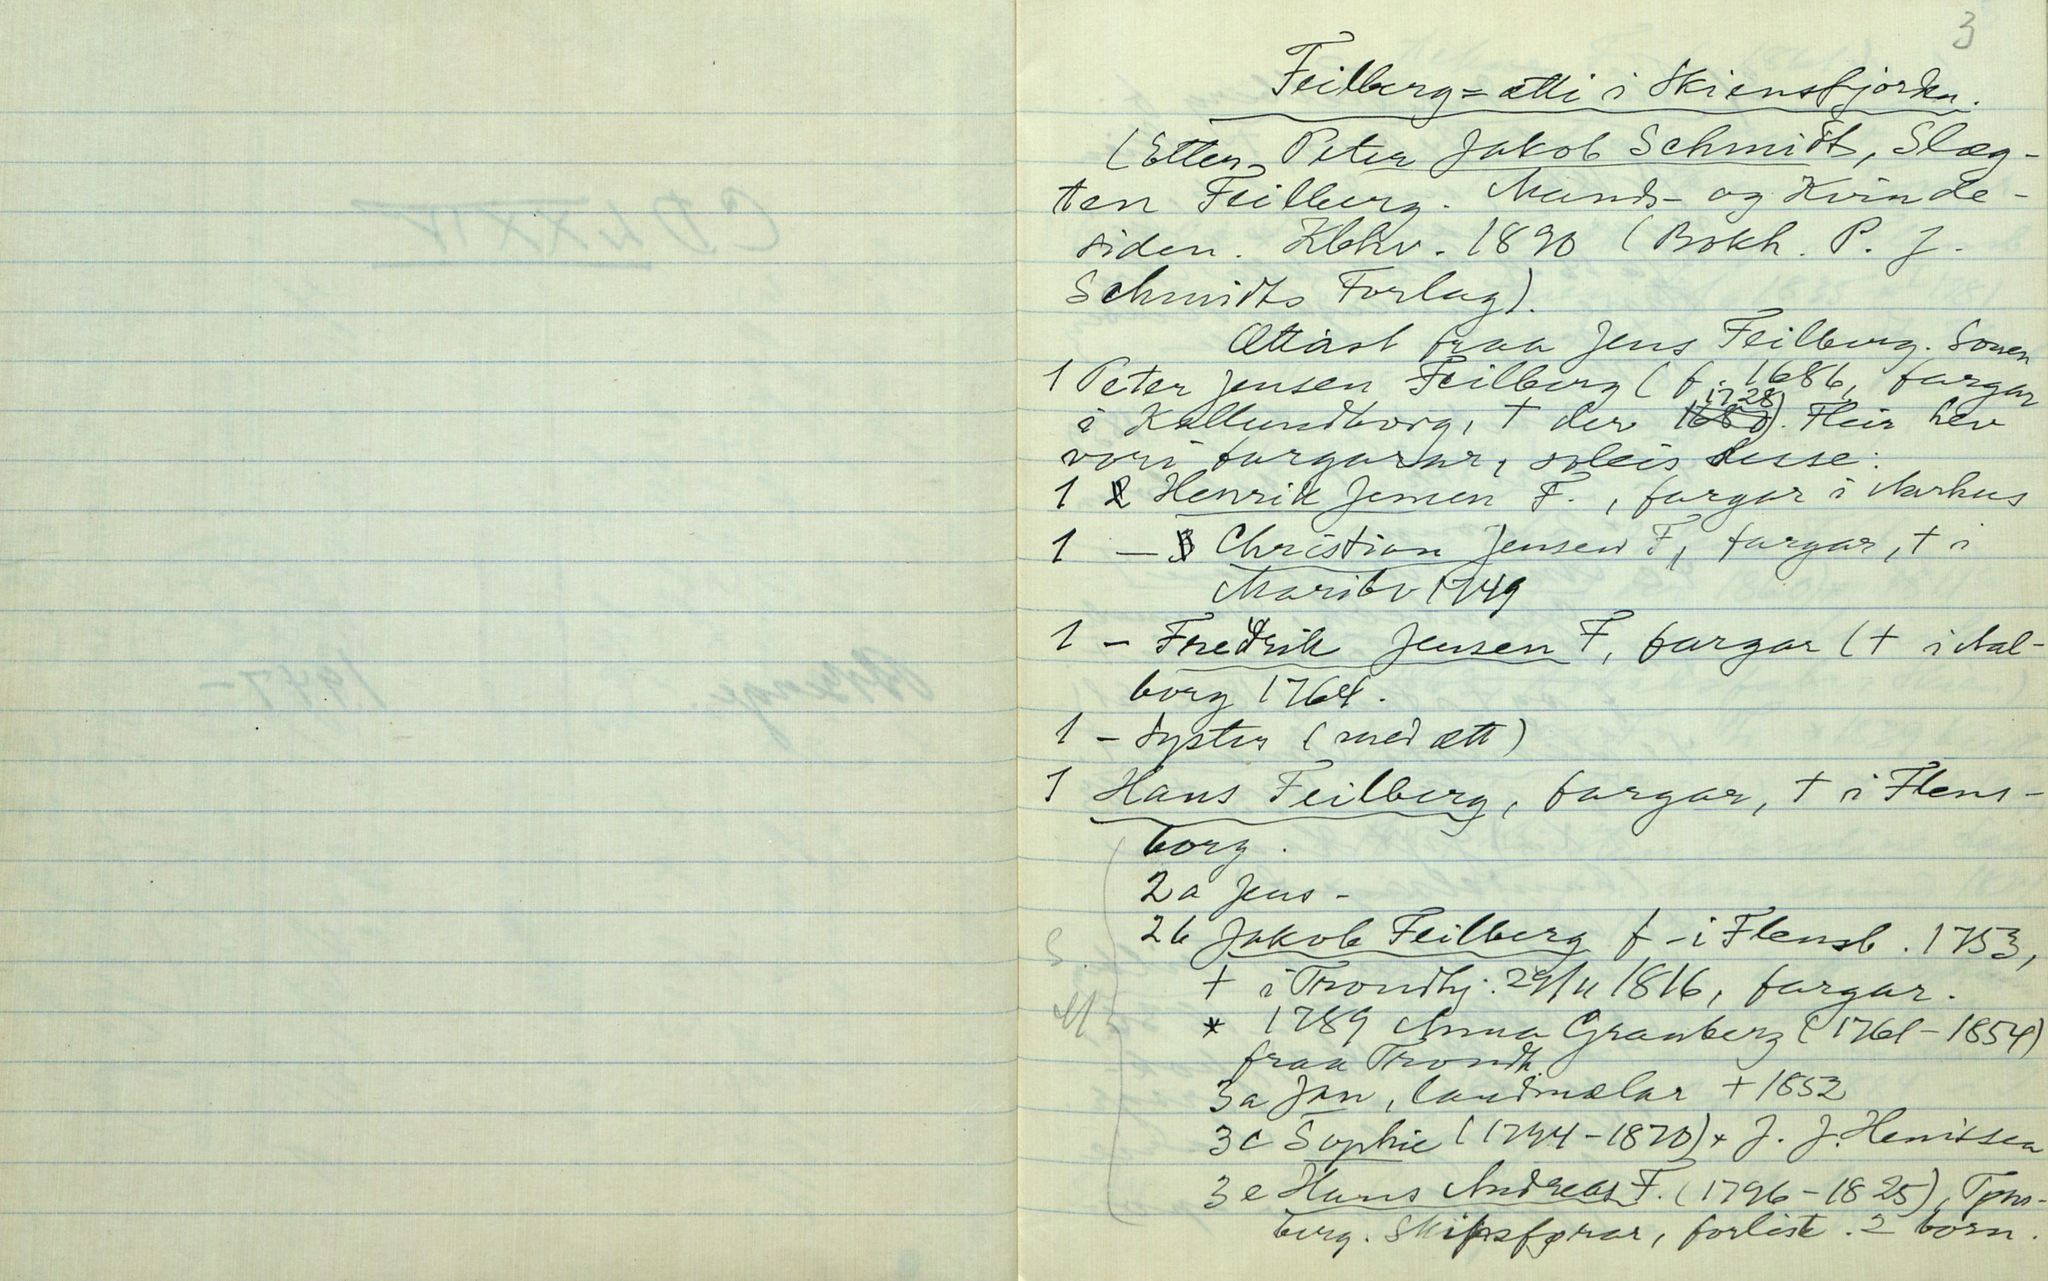 3
Feilberg-ætti i Skiensfjorden.
(Etter Peter Jakob Schmidt, Slæg-
ten Feilberg. Mands- og Kvinde-
siden. Kbhv. 1890 (Bokh. P. J.
Schmidts Forlag).
Ættast fraa Jens Feilberg. Sonen
1 Peter Jensen Feilberg (f. 1686, fargar
i Kallundborg, † der 1728). Fleir hev
vori fargarar, soleis desse:
1 Henrik Jensen F., fargar i Aarhus
1 — Christian Jensen F, fargar, † i
Maribo 1749
1 – Fredrik Jensen F, fargar († i Aal-
borg 1764.
1 – Syster (med ætt)
1 Hans Feilberg, fargar, † i Flens-
borg.
2a Jens –
2b Jakob Feilberg f – i Flensb. 1753,
† i Trondhj. 29/11 1816, fargar.
* 1789 Anna Granberg (1761–1854)
fraa Trondh.
3a Jan, landmælar † 1852
3c Sophie (1794–1870) * J. J. Henissen
3e Hans Andreas F. (1796–1825), Tøns-
berg. Skipsførar, forliste. 2 born.